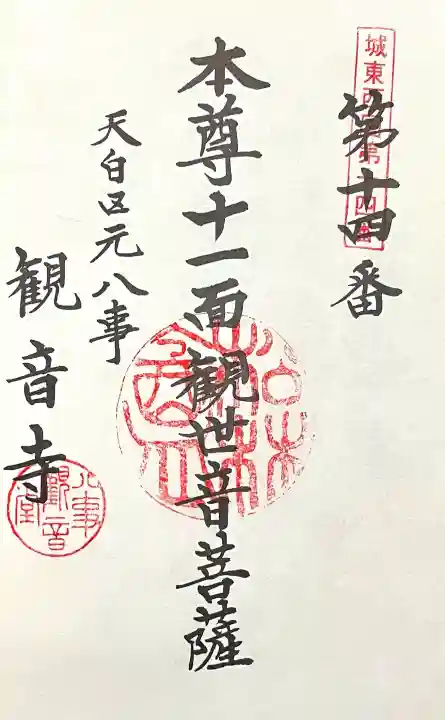 城東西国第十四番
第十四番
本尊十一面観世音菩薩
天白区元八事
観音寺
八事
觀音
堂